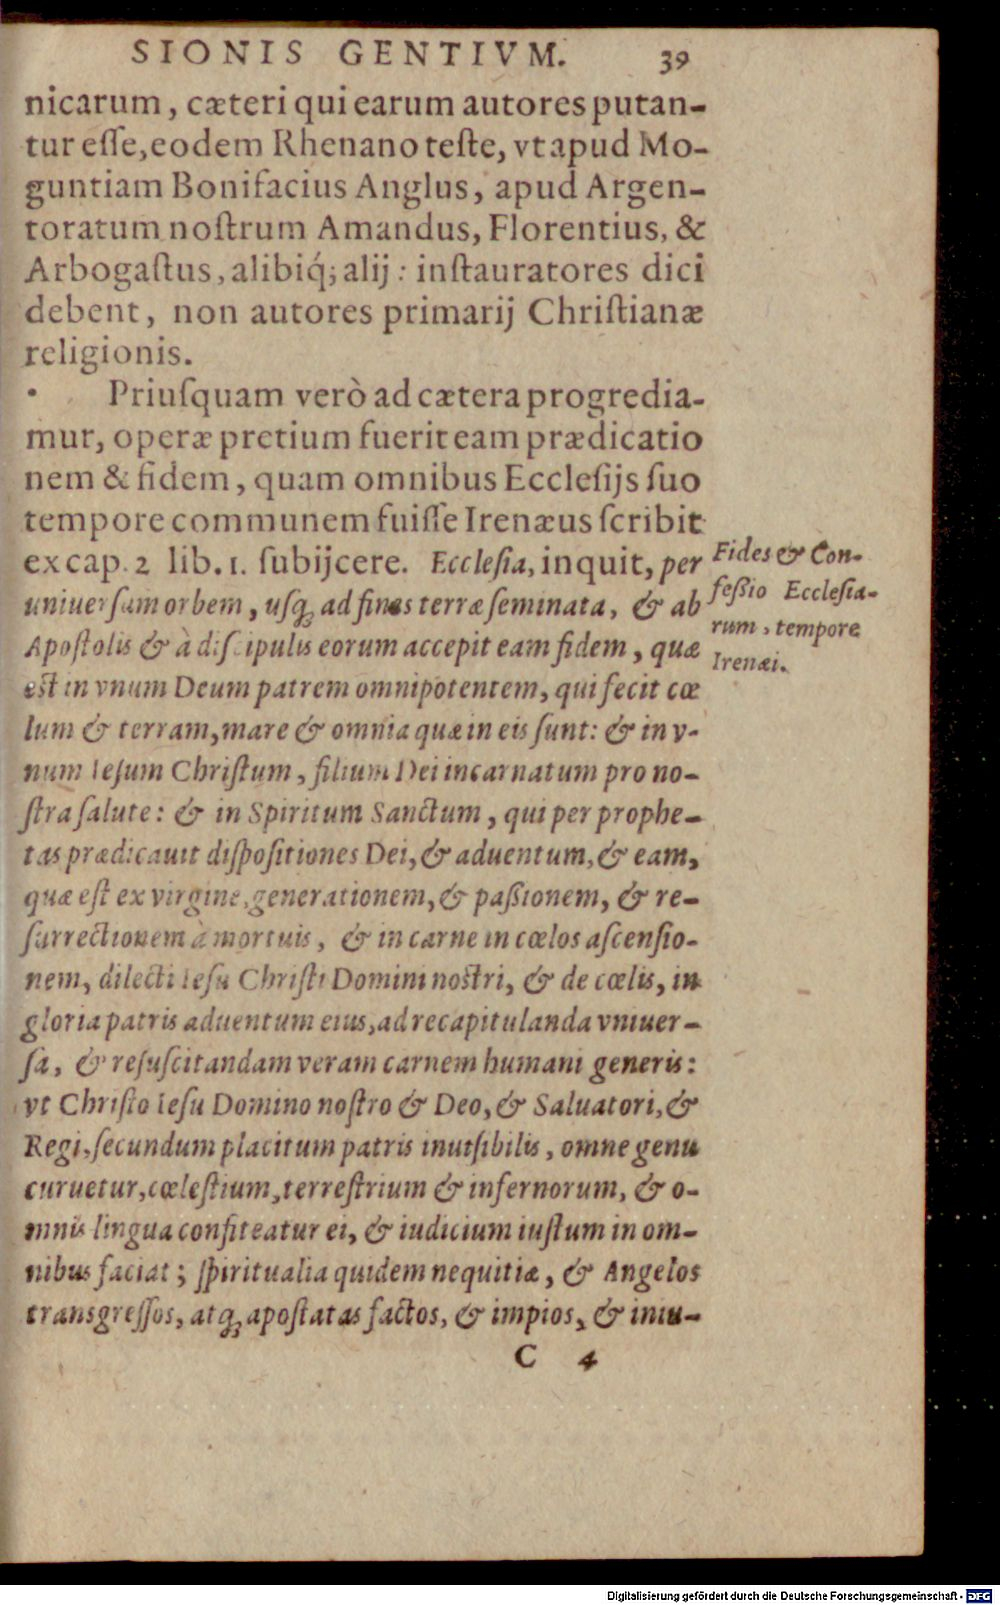 SIONIS GENTIVM. 39
nicarum, cæteri qui earum autores putan-
tur eſſe, eodem Rhenano teſte, vt apud Mo-
guntiam Bonifacius Anglus, apud Argen-
toratum noſtrum Amandus, Florentius, &
Arbogaſtus, alibiq́; alij: inſtauratores dici
debent, non autores primarij Chriſtianæ
religionis.
Priuſquam verò ad cætera progredia-
mur, operæ pretium fuerit eam prædicatio
nem & fidem, quam omnibus Eccleſijs ſuo
tempore communem fuiſſe Irenæus ſcribit
ex cap. 2 lib. 1. ſubijcere. Eccleſia, inquit, per
uniuerſum orbem, uſq; ad fines terræ ſeminata, & ab
Apoſtolis & à diſcipulis eorum accepit eam fidem, quæ
eſt in vnum Deum patrem omnipotentem, qui fecit cœ
lum & terram, mare & omnia quæ in eis ſunt: & in v-
num Ieſum Chriſtum, filium Dei incarnatum pro no-
ſtra ſalute: & in Spiritum Sanctum, qui per prophe-
tas prædicauit diſpoſitiones Dei, & aduentum, & eam,
quæ eſt ex virgine, generationem, & paſsionem, & re-
ſurrectionem à mortuis, & in carne in cœlos aſcenſio-
nem, dilecti Ieſu Chriſti Domini noſtri, & de cœlis, in
gloria patris aduentum eius, ad recapitulanda vniuer-
ſa, & reſuſcitandam veram carnem humani generis:
vt Chriſto Ieſu Domino noſtro & Deo, & Saluatori, &
Regi, ſecundum placitum patris inuiſibilis, omne genu
curuetur, cœleſtium, terreſtrium & infernorum, & o-
mnis lingua confiteatur ei, & iudicium iuſtum in om-
nibus faciat; ſpiritualia quidem nequitiæ, & Angelos
transgreſſos, atq; apoſtatas factos, & impios, & iniu-
C 4
Fides & Con-
feſsio Eccleſia-
rum, tempore
Irenæi.
Digitalisierung gefördert durch die Deutsche Forschungsgemeinschaft - DFG